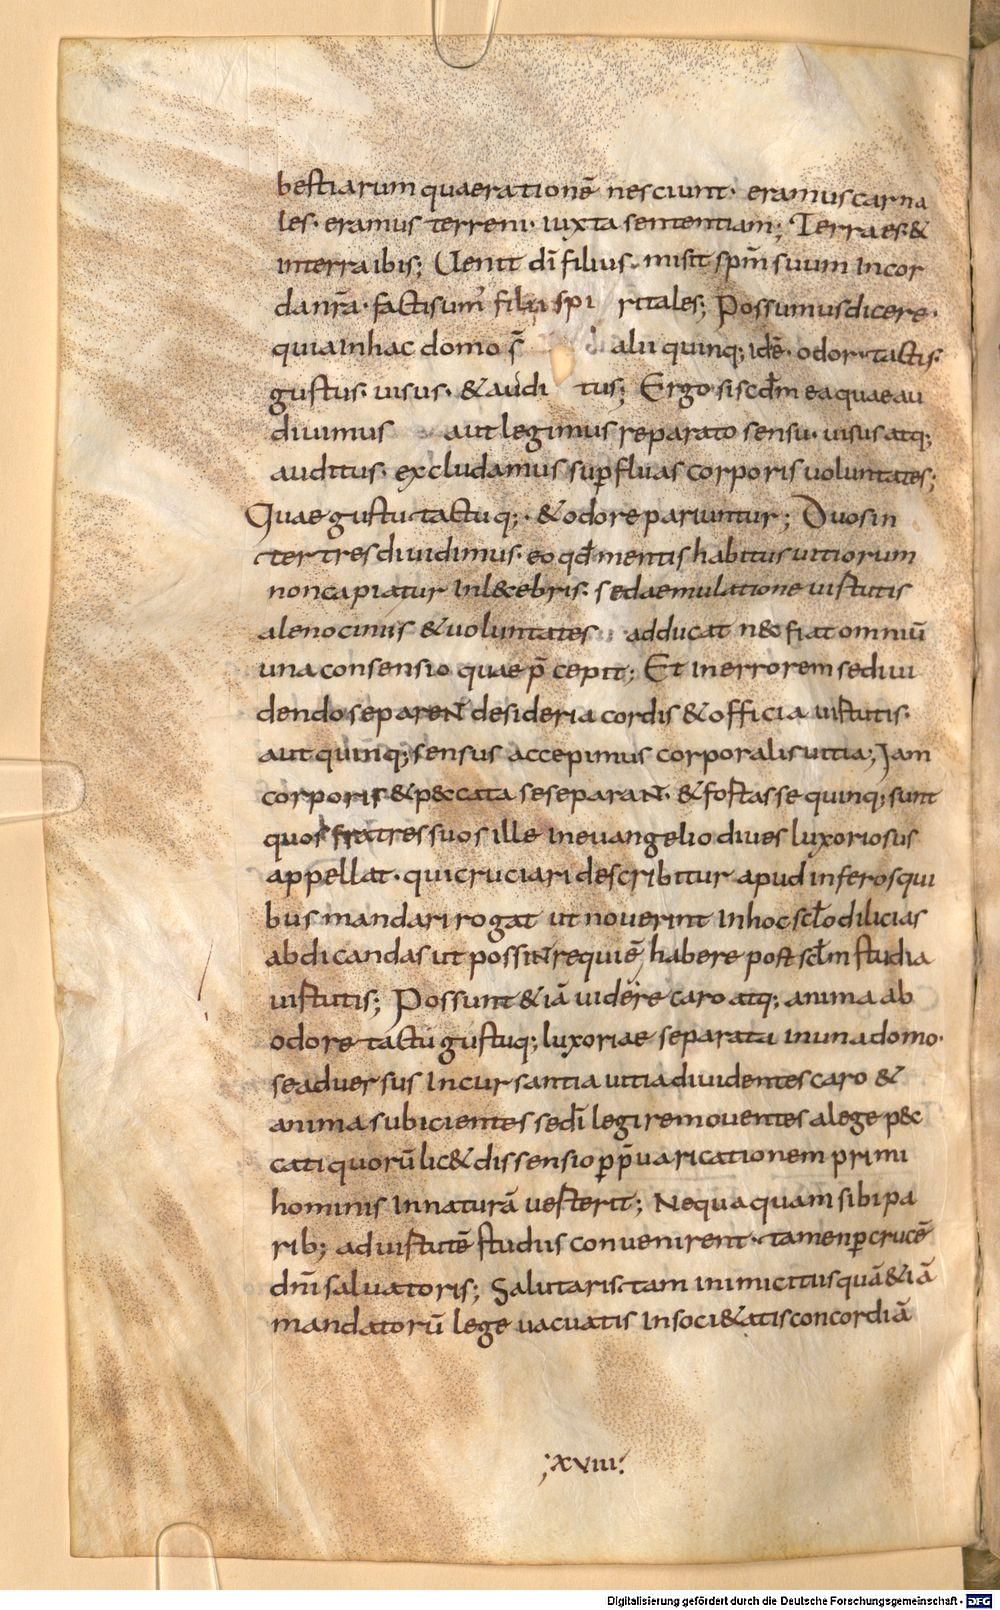 bestiarum quae rationē nesciunt· eramus carna
les· eramus terreni· iuxta sententiam; Terra es· &
in terra ibis; Uenit dī filius· misit sp̄m suum in cor
da nr̄a· facti sum' filii spi ritales; Possumus dicere·
quia in hac domo s̄ alii quinq; idē· odor· tactis·
gustus· uisus· & audi tus; Ergo si scd̄m ea quae au
diuimus aut legimus reparato sensu· uisus atq;
auditus· excludamus sup̄fluas corporis uoluntates;
Quae gustu tactuq;· & odore pariuntur; Duos in
ter tres diuidimus· eo qđ mentis habitus uitiorum
non capiatur inl&ebris· sed aemulatione uirtutis
a lenociniis & uoluntates adducat n& fiat omniū
una consensio quae p̄cepit; Et in errorem se diui
dendo separeNT desideria cordis & officia uirtutis·
aut quinq; sensus accepimus corporalis uitia; Jam
corporis & p&cata se separaNT· & fortasse quinq; sunt
quos fratres suos ille in euangelio diues luxoriosus
appellat· qui cruciari describitur apud inferos qui
bus mandari rogat ut nouerint in hoc scło dilicias
abdicandas ut possiNT requiē habere post scłm studia
uirtutis; Possunt & iā uidere caro atq; anima ab
odore tactu gustuq; luxoriae separata in una domo·
se aduersus incursantia uitia diuidentes caro &
anima subicientes se dī legi remouentes a lege p&c
cati quorū lic& dissensio p̱ p̄uaricationem primi
hominis in naturā uerterit; Nequaquam sibi pa
rib; ad uirtutē studiis conuenirent· tamen p̱ crucē
dn̄i saluatoris; Salutaris tam inimicitus quā & iā
mandatorū lege uacuatis in soci&atis concordiā
;XVIII;
Digitalisierung gefördert durch die Deutsche Forschungsgemeinschaft - DFG